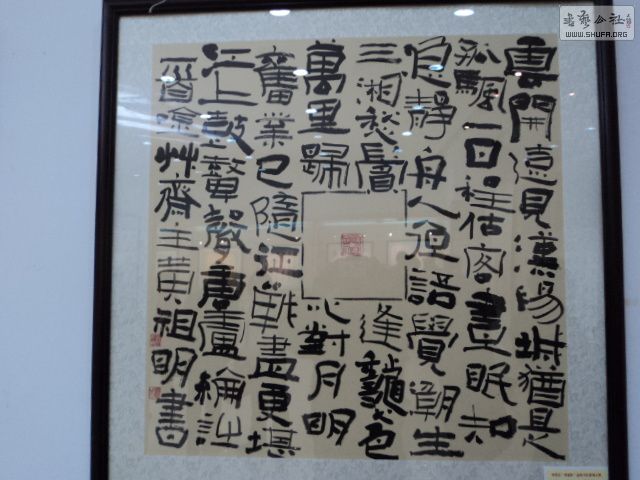 雲開遠見漢陽城猶是
孤颿一日程估客晝眠知
浪靜舟人夜語覺潮生
三湘愁鬢逢龝色
萬里歸心對月明
舊業已隨征戰盡更堪
江上鼓鼙聲唐盧綸詩
艸齋主黃祖明書
書藝公社
WWW.SHUFA.ORG